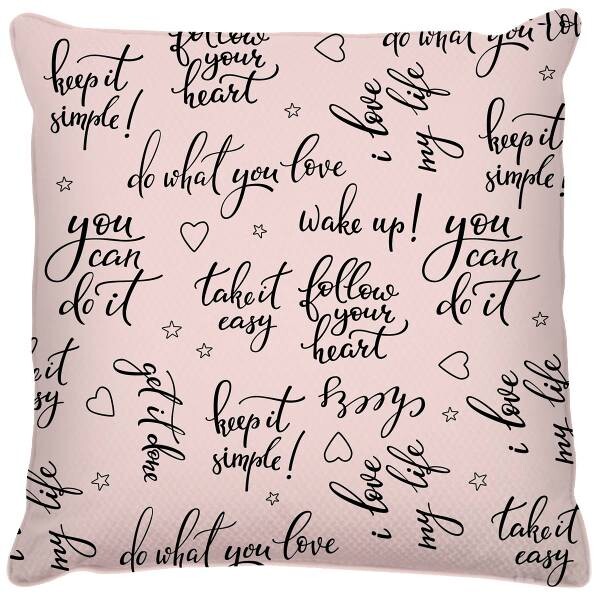 follow
your
heart
do what you lo
keep it
simple!
i love
my life
keep it
simple!
do what you love
you
can
do it
wake up!
you
can
do it
take it
easy
follow
your
heart
e it
sy
get it done
keep it
simple!
i love
my life
i love
my life
my life
do what you love
take it
easy